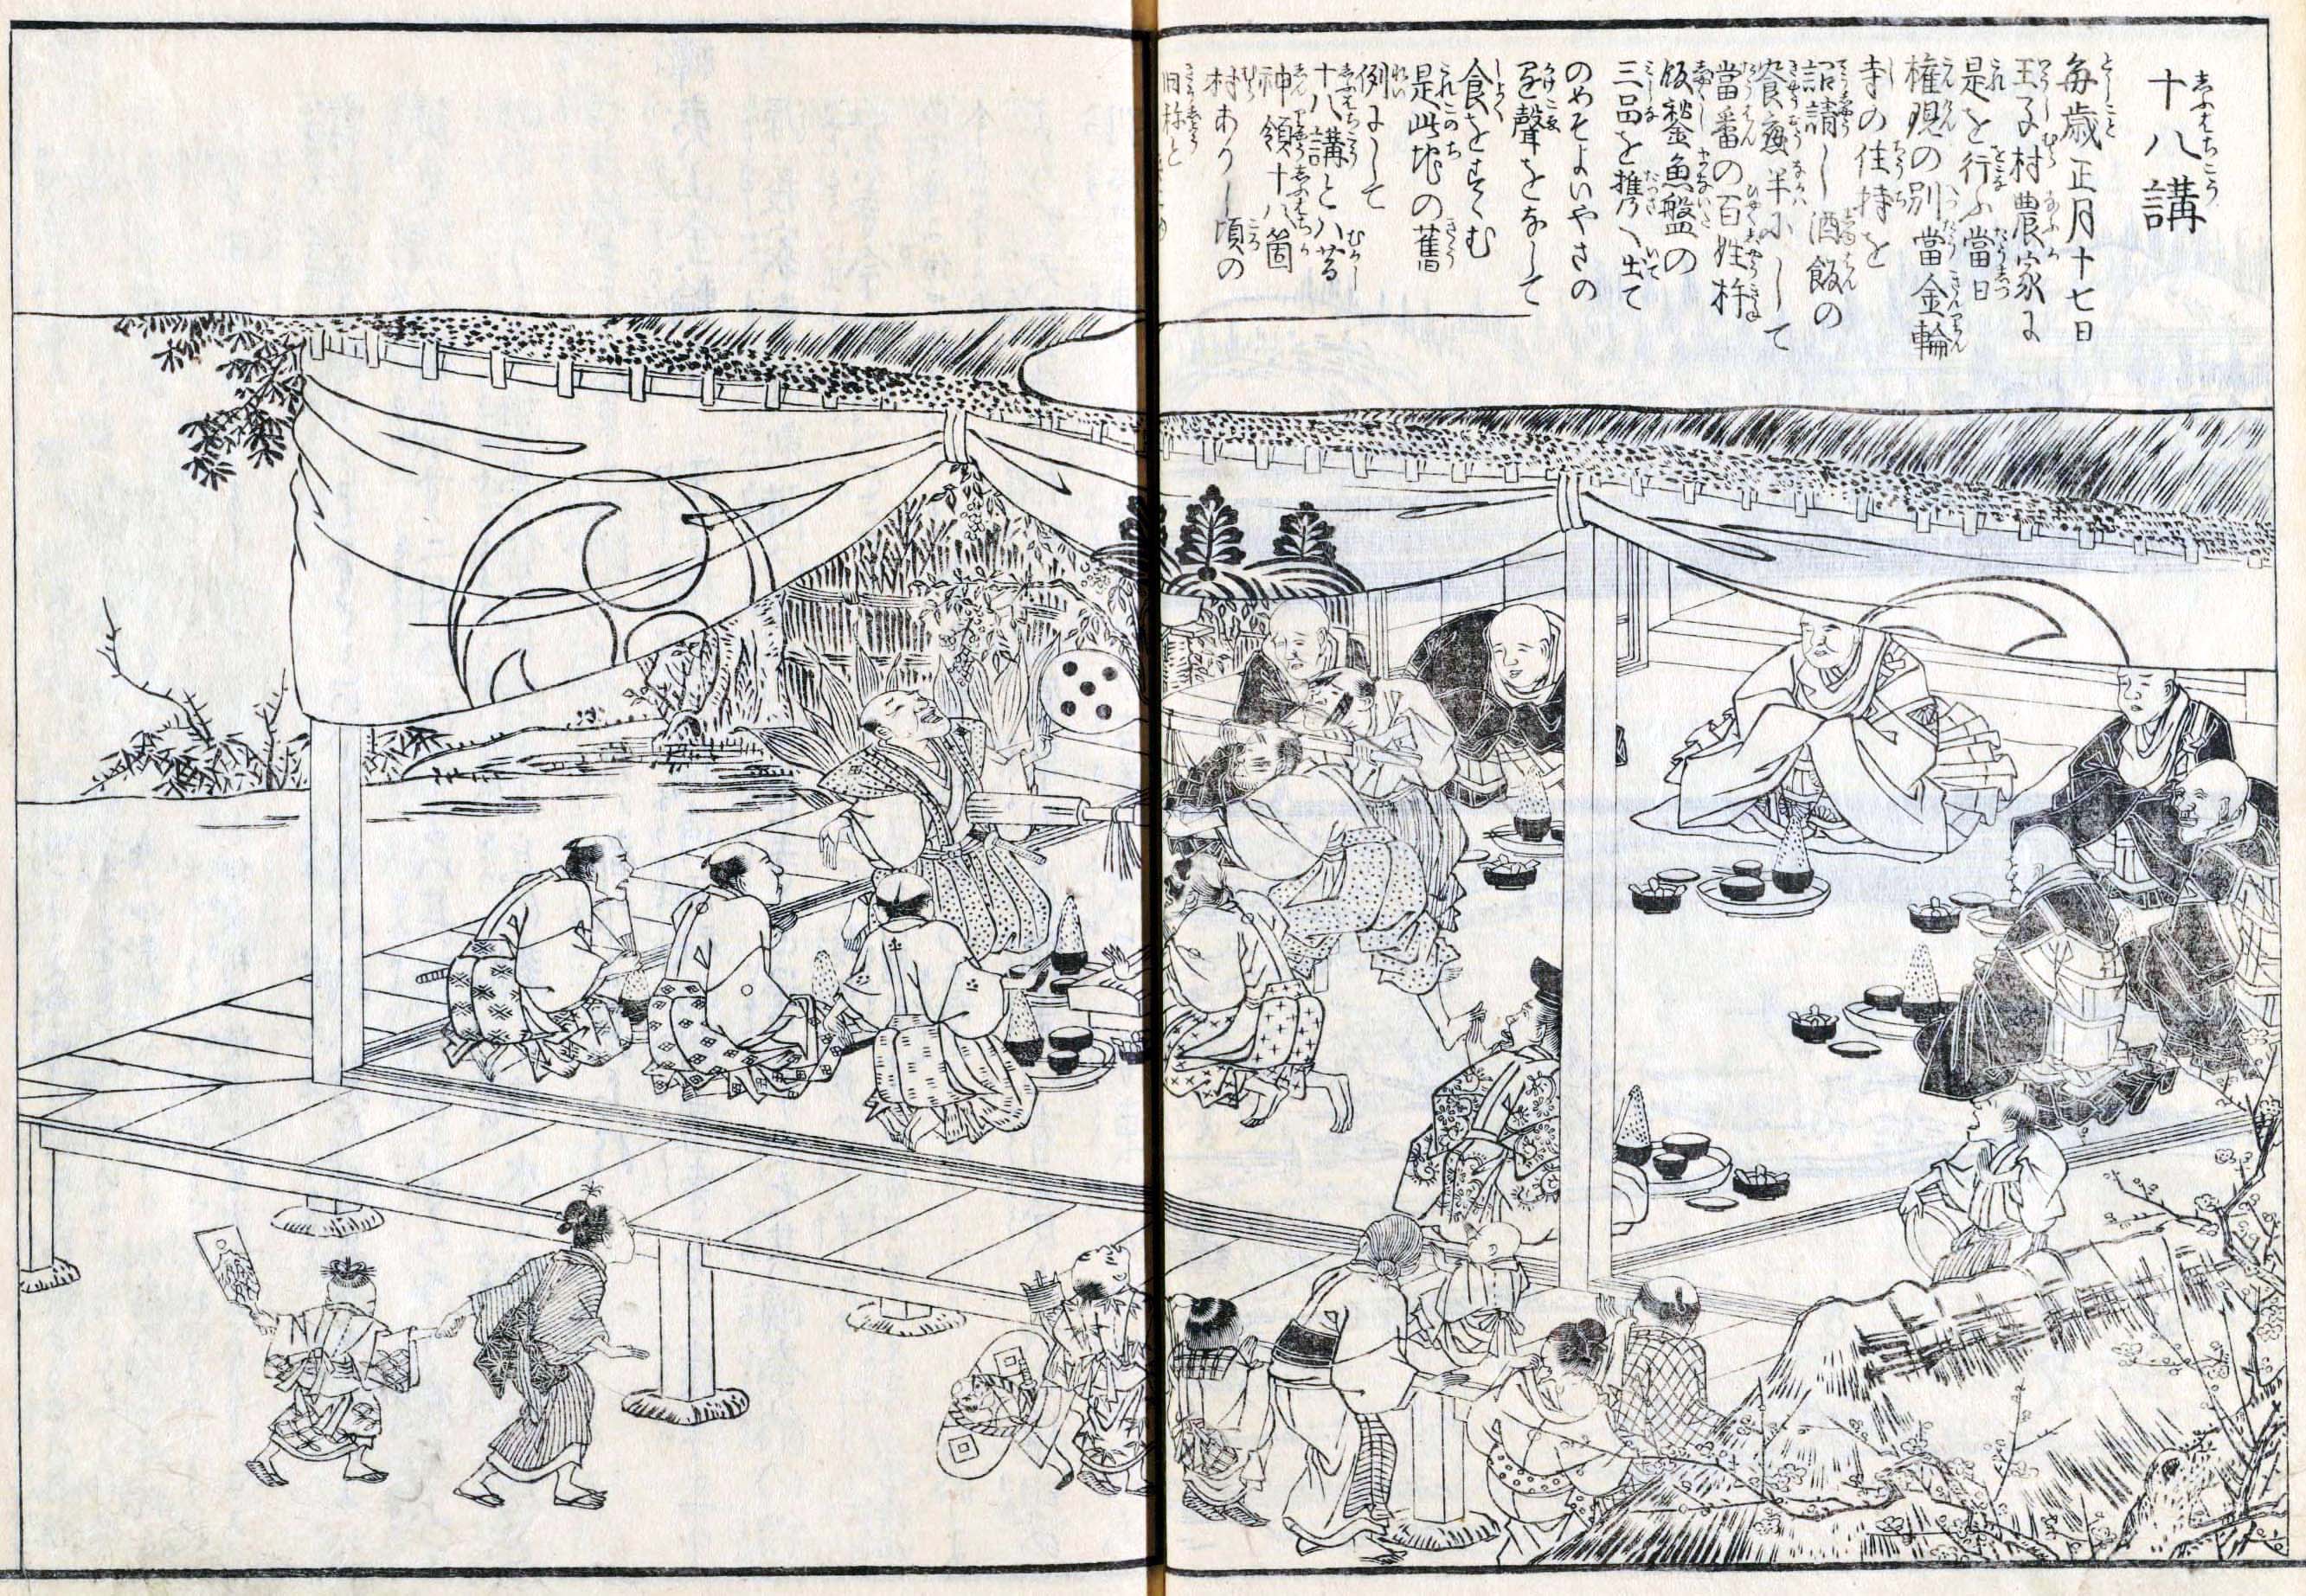 十八講
毎歳正月十七日
王子村農家に
是を行ふ當日
権現の別當金輪
寺の住持を
招請し酒飯の
饗應半にして
當番の百姓杵
飯鍫魚盤の
三品を携へ出て
のめそよいやさの
聲をなして
食をすゝむ
是此地の舊
例にして
十八講とハ昔
神領十八箇
村ありし頃の
旧称と